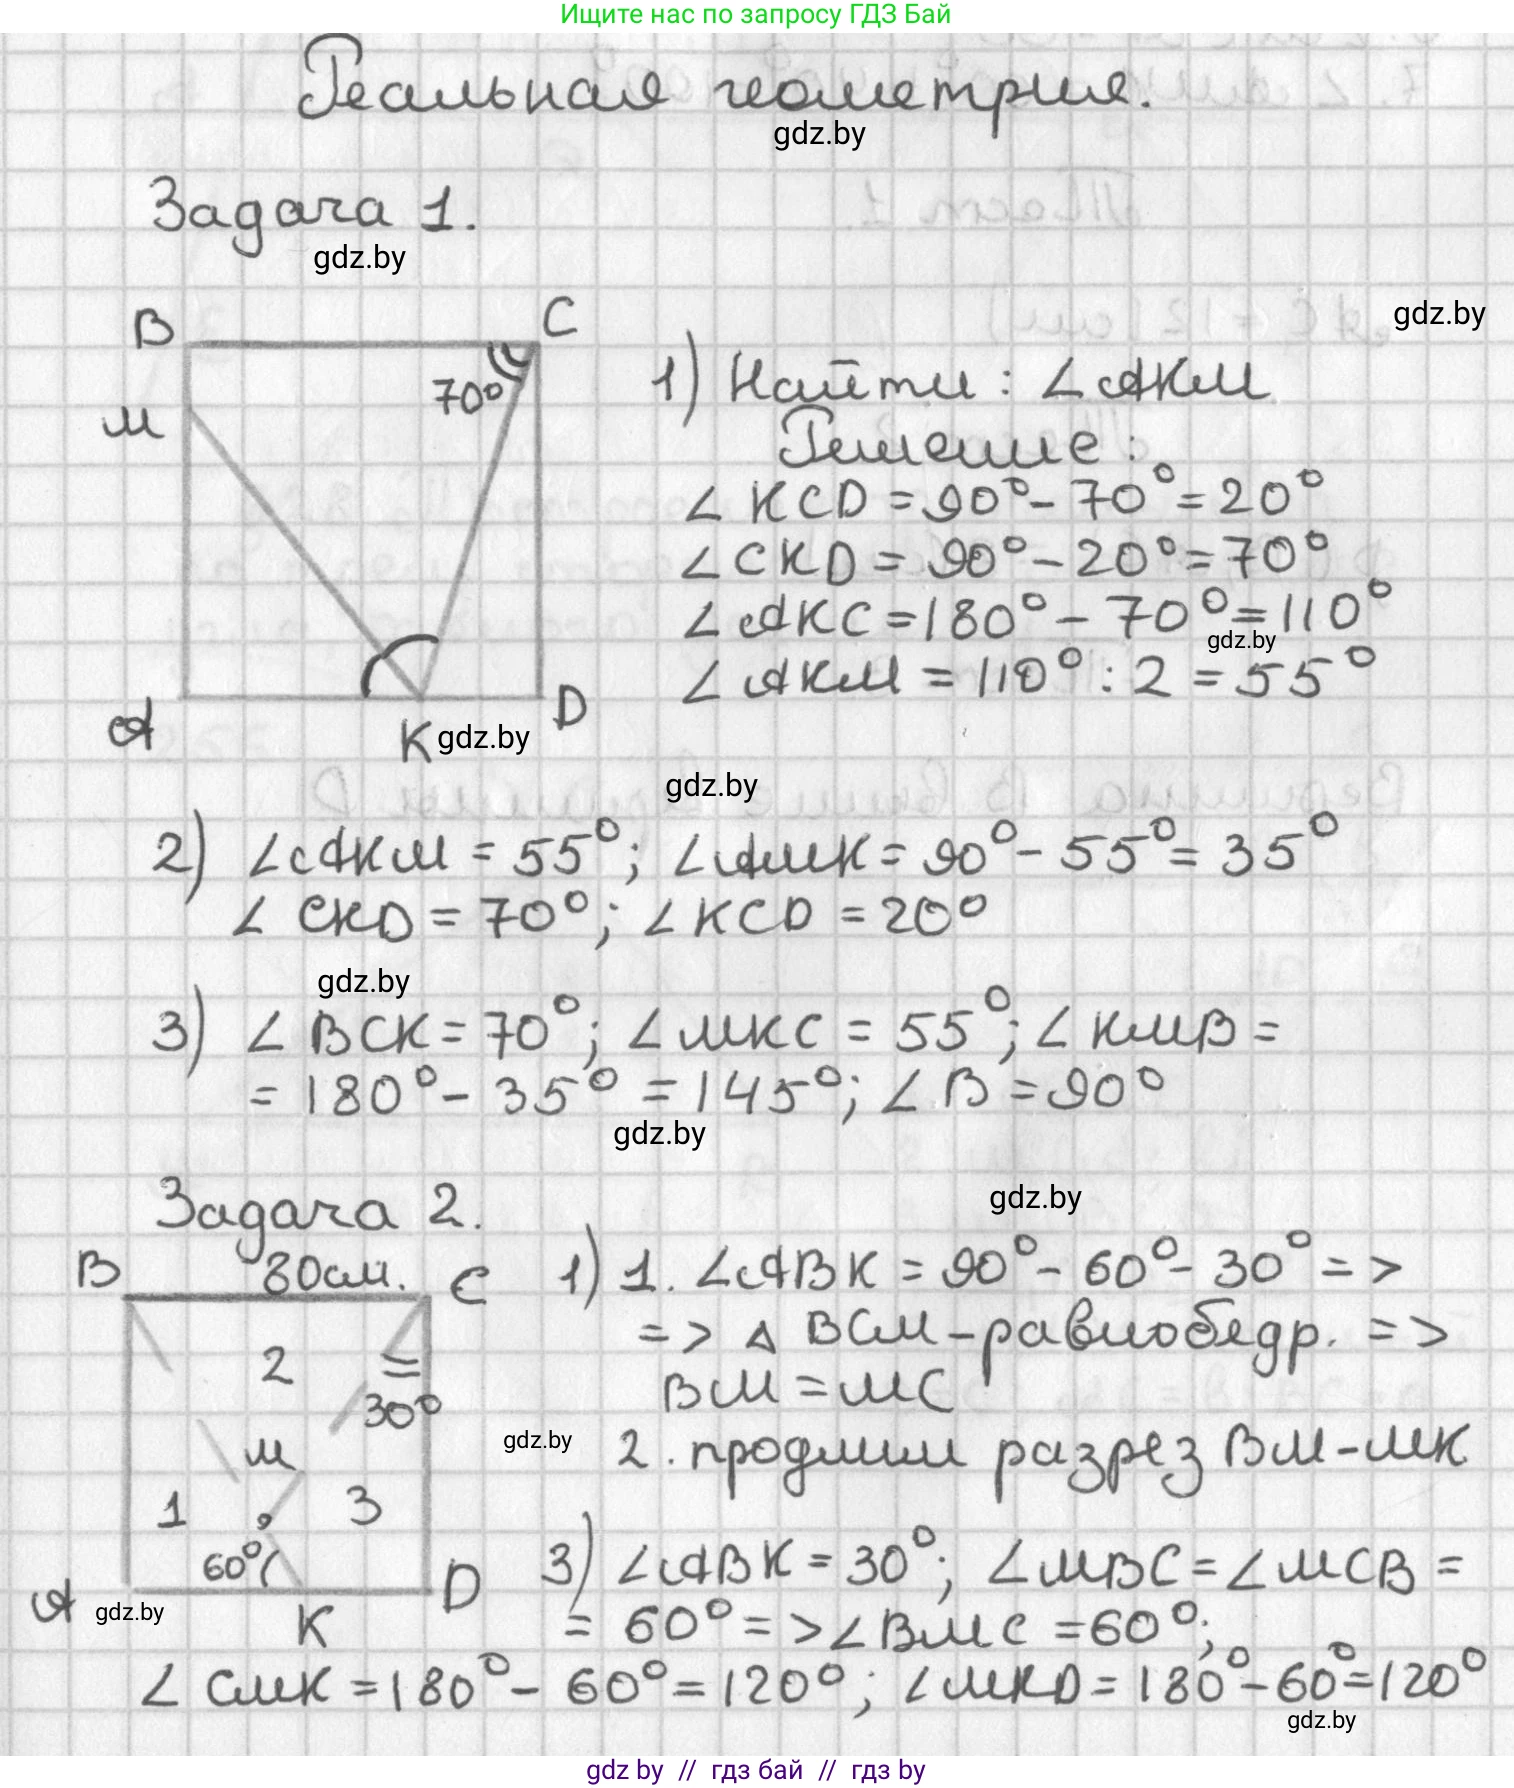 Ищите нас по запросу ГДЗ Бай
Реальная геометрия.
gdz.by
Задача 1.
gdz.by
gdz.by
B
C
M
70°
A
K
D
gdz.by
1) Найти: ∠AKM
Решение:
∠KCD = 90° - 70° = 20°
∠CKD = 90° - 20° = 70°
∠AKC = 180° - 70° = 110°
gdz.by
∠AKM = 110° : 2 = 55°
gdz.by
2) ∠AKM = 55°; ∠AMK = 90° - 55° = 35°
∠CKD = 70°; ∠KCD = 20°
gdz.by
3) ∠BCK = 70°; ∠MKC = 55°; ∠KMB =
= 180° - 35° = 145°; ∠B = 90°
gdz.by
Задача 2.
gdz.by
B
80см.
C
2
30°
M
1
3
60°
A
K
D
gdz.by
1) 1. ∠ABK = 90° - 60° - 30° =>
=> △ BCM - равнобедр. =>
BM = MC
gdz.by
2. продлим разрез BM - MK
3) ∠ABK = 30°; ∠MBC = ∠MCB =
= 60° => ∠BMC = 60°;
∠CMK = 180° - 60° = 120°; ∠MKD = 180° - 60° = 120°
gdz.by
gdz by // гдз бай // гдз by